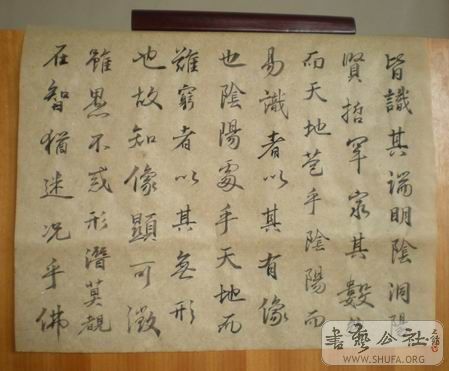 皆識其端明陰洞陽
賢哲罕窮其數然
而天地苞乎陰陽而
易識者以其有像
也陰陽處乎天地而
難窮者以其無形
也故知像顯可徵
雖愚不惑形潛莫覩
在智猶迷況乎佛
書藝公社
WWW.SHUFA.ORG